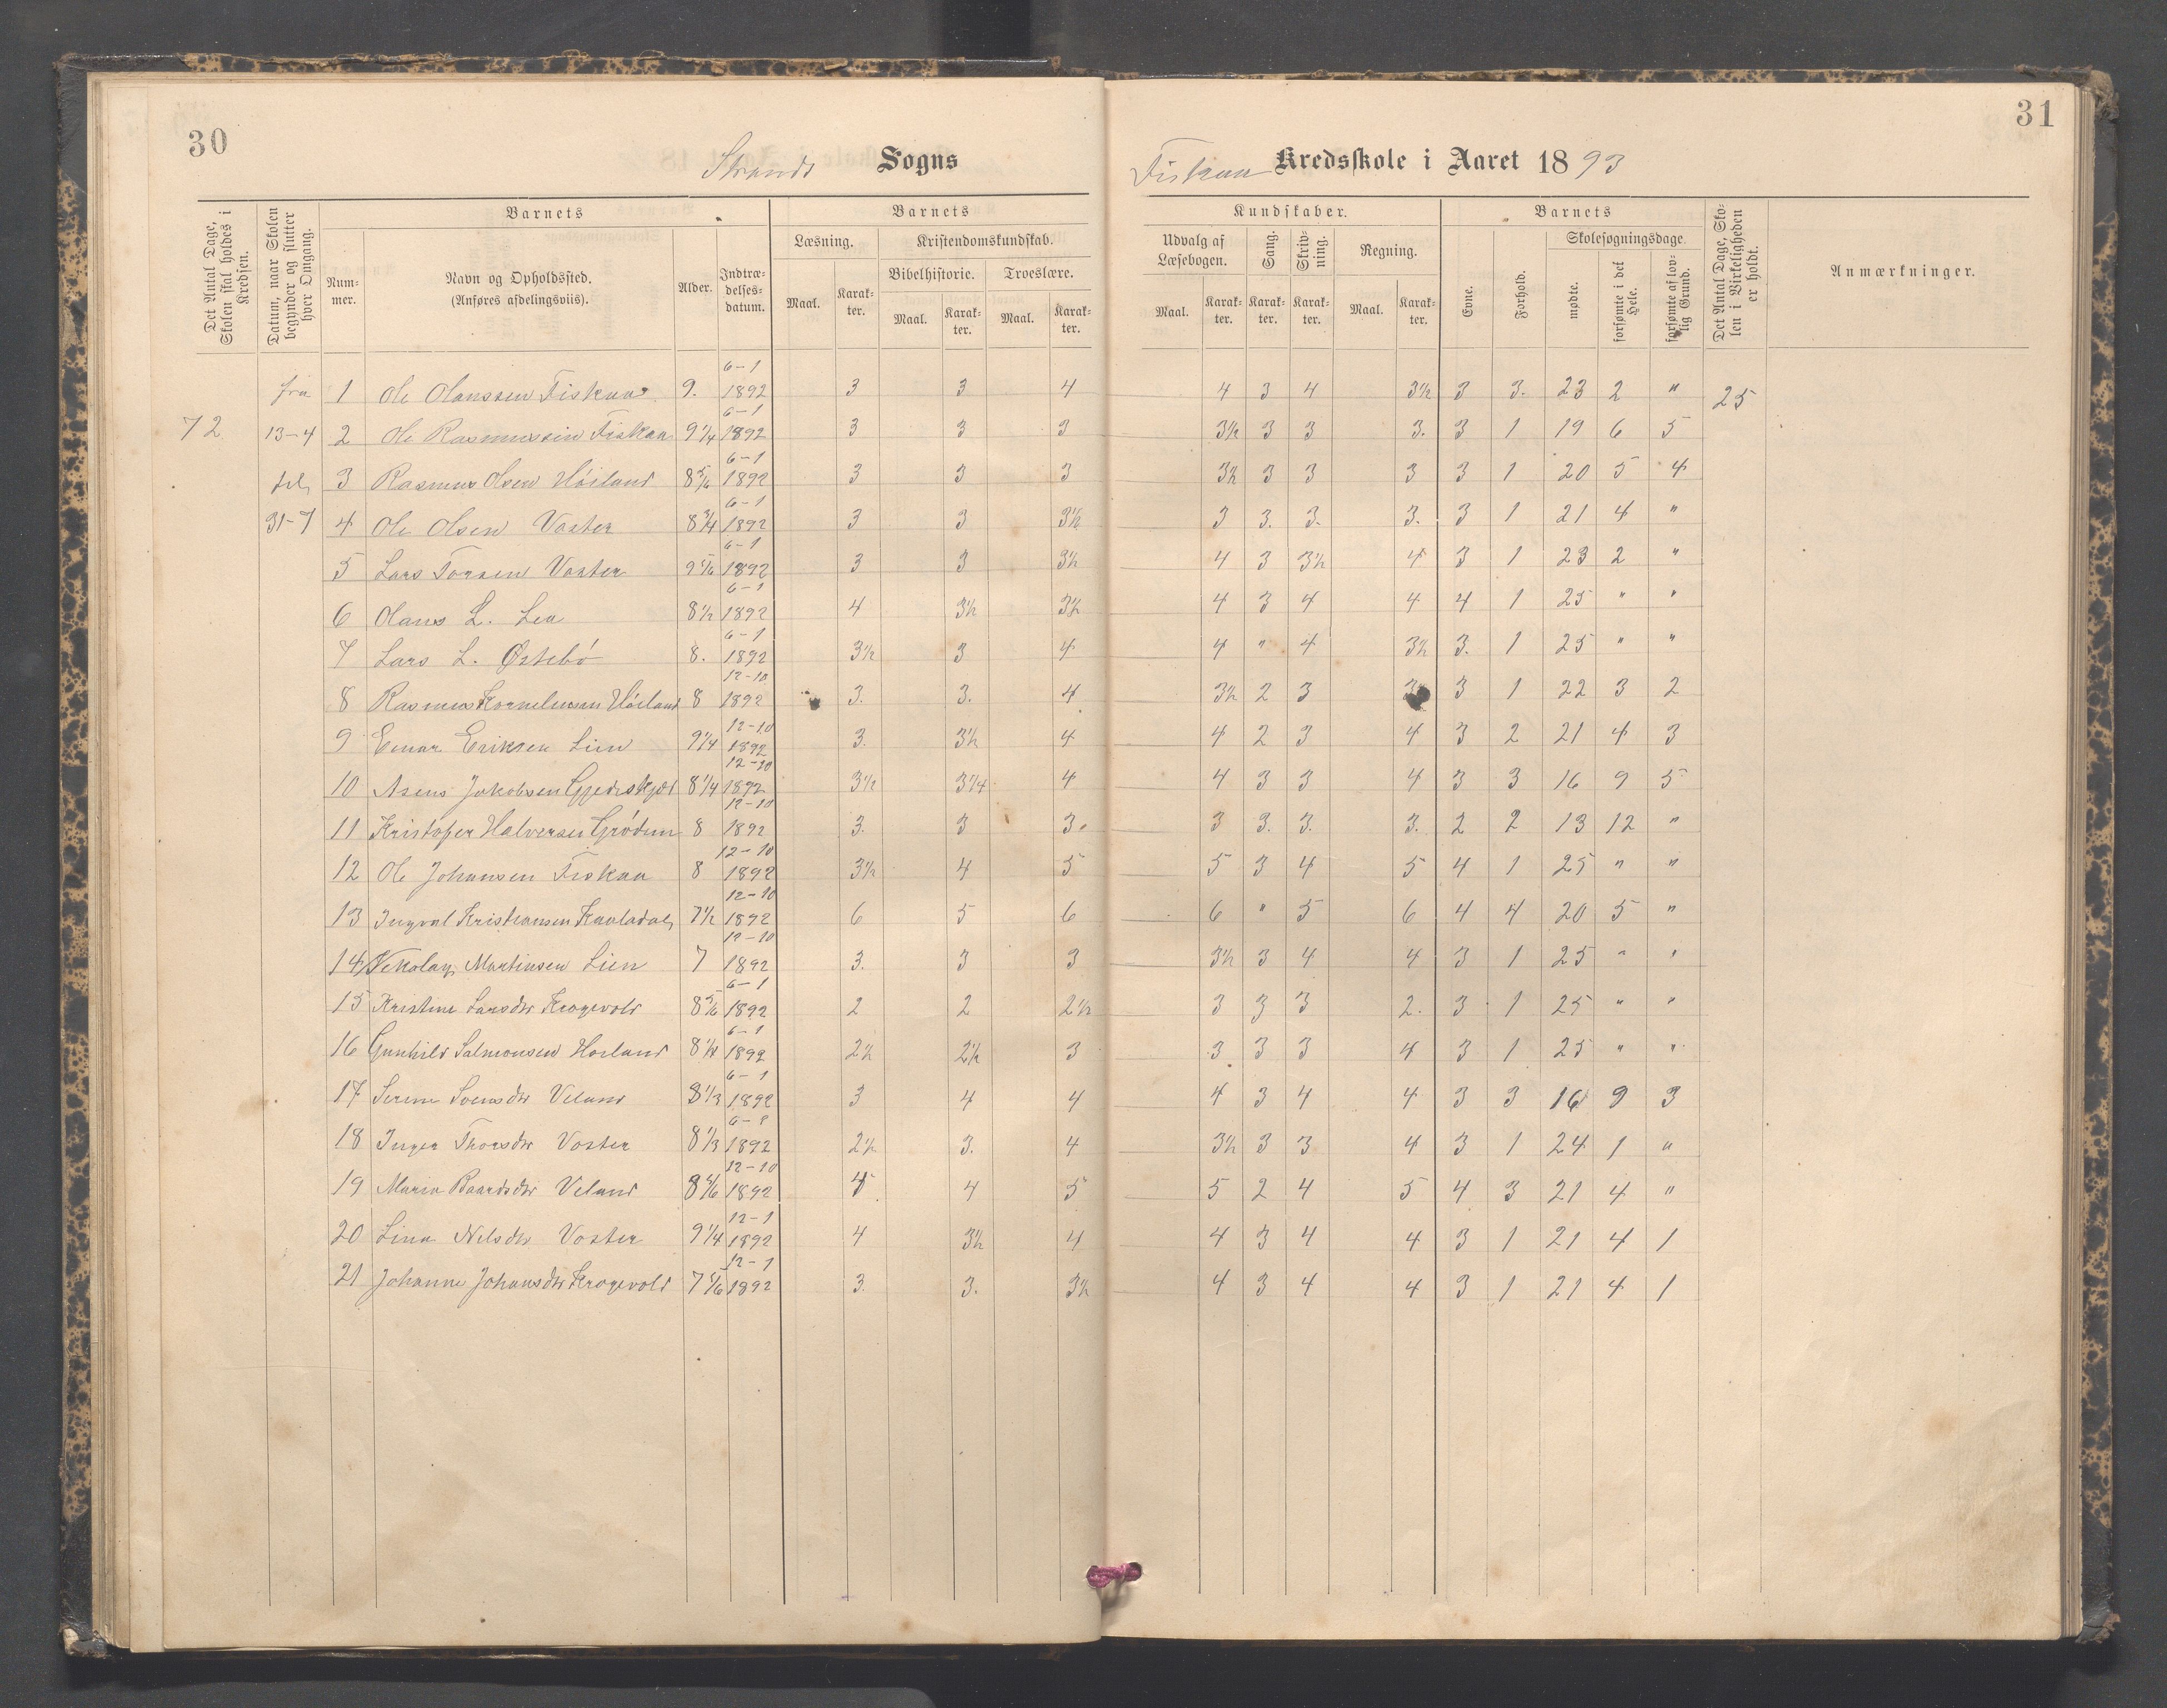 30
31
Strands Sogns
Fiskaa Kredsskole i Aaret 1893
Det Antal Dage, Skolen skal holdes i Kredsen.
Datum, naar Skolen begynder og slutter hver Omgang.
Barnets
Barnets
Kundskaber.
Barnets
Det Antal Dage, Skolen i Virkeligheden er holdt.
Anmærkninger.
Nummer.
Navn og Opholdssted. (Anføres afdelingsviis).
Alder.
Indtrædelsesdatum.
Læsning.
Kristendomskundskab.
Bibelhistorie.
Troeslære.
Udvalg af Læsebogen.
Sang.
Skrivning.
Regning.
Evne.
Forhold.
Skolesøgningsdage
mødte.
forsømte i det Hele.
forsømte af lovlig Grund.
Maal. Karakter. Maal. Karakter. Maal. Karakter. Maal. Karakter. Karakter. Karakter. Maal. Karakter.
fra 1 Ole Olanssen Fiskaa 9. 6-1 1892 3 3 4 4 3 4 3½ 3 3. 23 2 " 25
72 13-4 2 Ole Rasmussein Fiskaa 9¼ 6-1 1892 3 3 3 3½ 3 3 3. 3 1 19 6 5
til 3 Rasmus Olsen Höiland 8 5/6 6-1 1892 3 3 3 3½ 3 3 3 3 1 20 5 4
31-7 4 Ole Olsen Voster 8¾ 6-1 1892 3 3 3½ 3 3. 3. 3. 3 1 21 4 "
5 Lars Torsen Voster 9 5/6 6-1 1892 3 3 3½ 4 3 3½ 4 3 1 23 2 "
6 Olans L. Lea 8½ 6-1 1892 4 3½ 3½ 4 3 4 4 4 1 25 " "
7 Lars L. Østebö 8. 6-1 1892 3½ 3 4 4 " 4 3½ 3. 1 25 " "
8 Rasmus Korneliusen Höiland 8 12-10 1892 3. 3. 4 3½ 2 3 3 3 1 22 3 2
9 Einar Eriksen Lien 9¼ 12-10 1892 3. 3½ 4 4 2 3 4 3 2 21 4 3
10 Asens Jakobsen 8¼ 12-10 1892 3½ 3¼ 4 4 3 3 4 3 3 16 9 5
11 Kristofer Halversen Grödem 8 12-10 1892 3. 3 3. 3 3. 3. 3. 2 2 13 12 "
12 Ole Johansen Fiskaa 8 12-10 1892 3½ 4 5 5 3 4 5 4 1 25 " "
13 Ingval Kristiansen 7½ 12-10 1892 6 5 6 6 " 5 6 4 4 20 5 "
14 Nekolay Martinsen Lien 7 12-10 1892 3. 3 3 3½ 3 4 4 3 1 25 " "
15 Kristine Larsdtr Krogevold 8 5/6 6-1 1892 2 2 2½ 3 3 3 2. 3 1 25 " "
16 Gunhild Salmonsen Höiland 6-1 1892 2½ 2½ 3 3 3 3 4 3 1 25 " "
17 Serine Svensdtr Veland 8⅓ 6-1 1892 3 4 4 4 3 4 4 3 3 16 9 3
18 Inger Thorsdtr Voster 8⅓ 1892 2½ 3. 4 3½ 3 3 4 3 1 24 1 "
19 Maria Baardsdtr Veland 8 5/6 12-10 1892 4 4 5 5 2 4 5 4 3 21 4 "
20 Lina Nilsdtr Voster 9¼ 12-1 1892 4 3½ 4 4 3 4 4 3 1 21 4 1
21 Johanne Johansdtr Krogevold 7 5/6 12-1 1892 3. 3. 3½ 4 3 4 4 3 1 21 4 1